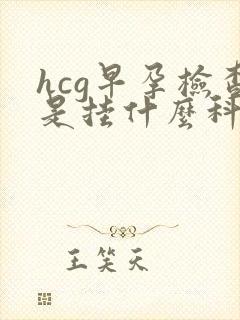 hcg早孕檢查
是挂什麼科
王笑天